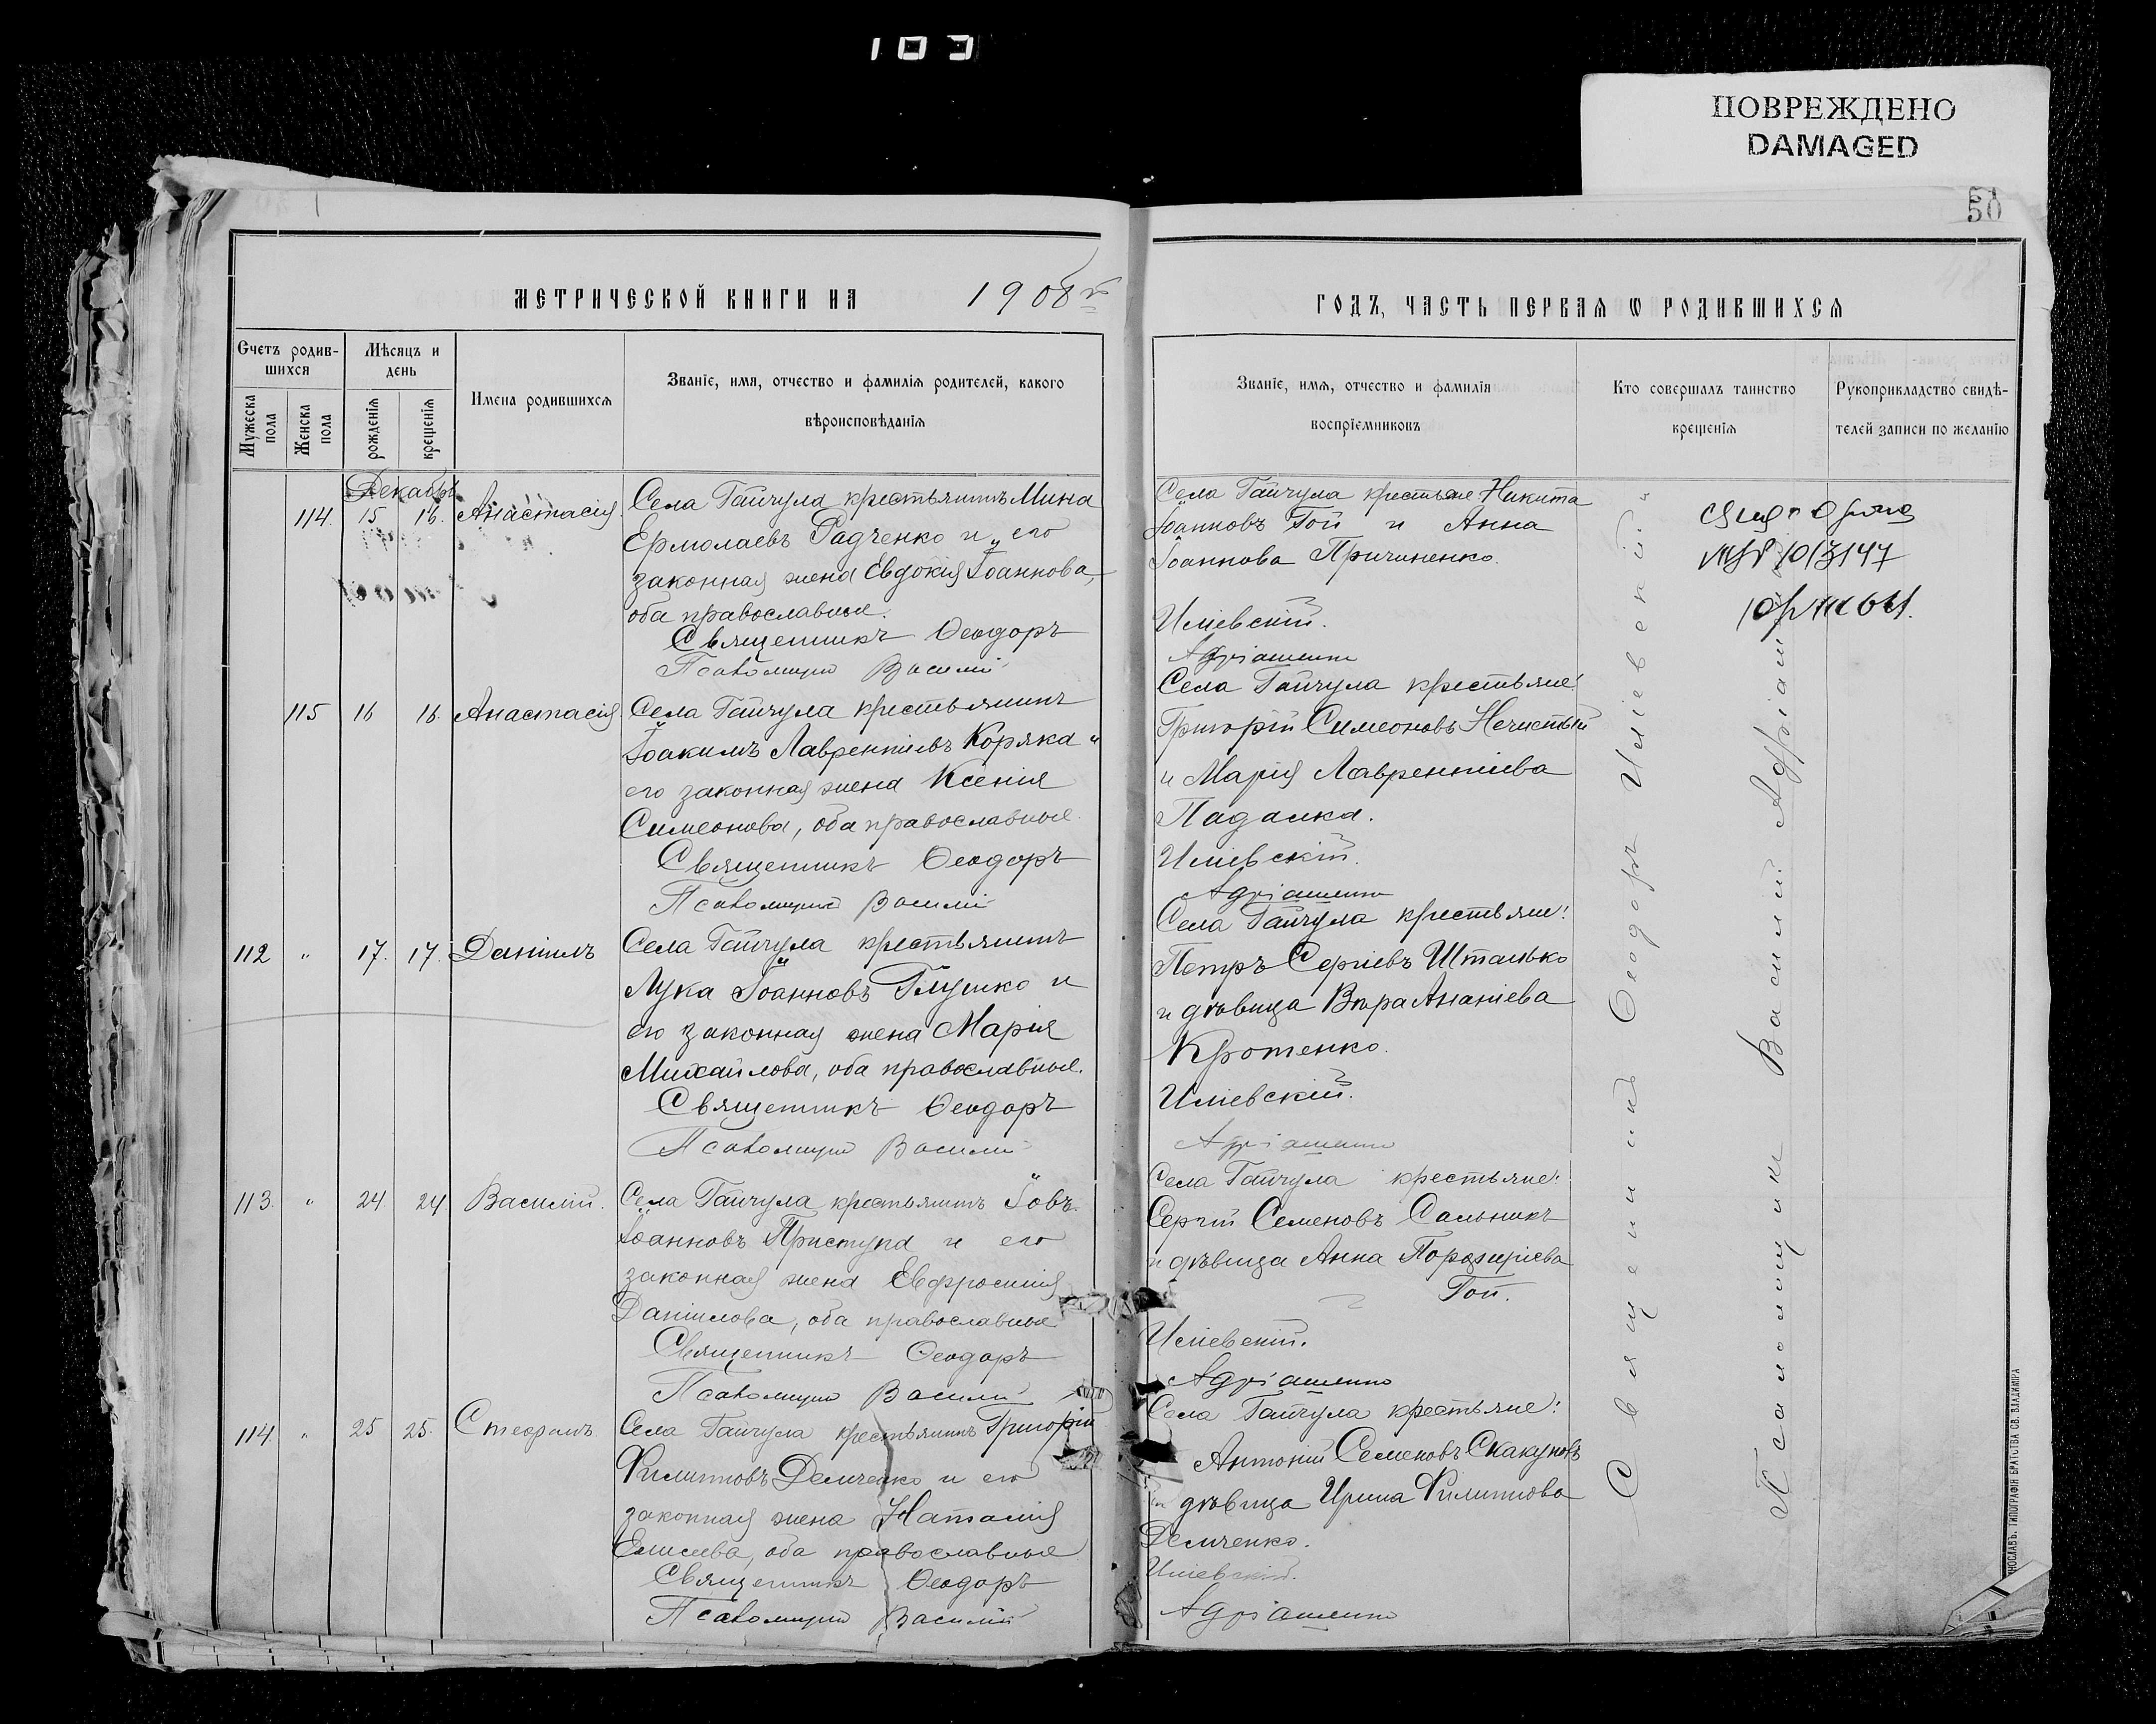 103
ПОВРЕЖДЕНО
DAMAGED
50
МЕТРИЧЕСКОЙ КНИГИ НА 1908 г.
Счетъ родив-
шихся
Мужеска пола
Женска пола
Мѣсяцъ и день
рожденія
крещенія
Имена родившихся
Званіе, имя, отчество и фамилія родителей, какого
вѣроисповѣданія
Декабрь
114. 15 16. Анастасія.
Села Гайчула крестьянинъ Мина
Ермолаевъ Радченко и его
законная жена Евдокія Іоаннова,
оба православные.
Священникъ Ѳеодоръ
Псаломщикъ Василій
115 16 16. Анастасія.
Села Гайчула крестьянинъ
Іоакимъ Лаврентіевъ Коряка и
его законная жена Ксенія
Симеонова, оба православные.
Священникъ Ѳеодоръ
Псаломщикъ Василій
112 " 17. 17. Даніилъ
Села Гайчула крестьянинъ
Лука Іоанновъ Глушко и
его законная жена Марія
Михайлова, оба православные.
Священникъ Ѳеодоръ
Псаломщикъ Василій
113. " 24. 24 Василій.
Села Гайчула крестьянинъ Іовъ
Іоанновъ Приступа и его
законная жена Евфросинія
Даніилова, оба православные
Священникъ Ѳеодоръ
Псаломщикъ Василій
114. " 25 25. Стефанъ
Села Гайчула крестьянинъ Григорій
Филипповъ Демченко и его
законная жена Наталія
Елисеева, оба православные
Священникъ Ѳеодоръ
Псаломщикъ Василій
ГОДЪ, ЧАСТЬ ПЕРВАЯ Ѡ РОДИВШИХСЯ
Званіе, имя, отчество и фамилія
воспріемниковъ
Кто совершалъ таинство
крещенія
Рукоприкладство свидѣ-
телей записи по желанію
Села Гайчула крестьяне Никита
Іоанновъ Гой и Анна
Іоаннова Причиненко.
Иліевскій.
Адріаненко
Села Гайчула крестьяне:
Григорій Симеоновъ Нечистый
и Марія Лаврентіева
Падалка.
Иліевскій.
Адріаненко
Села Гайчула крестьяне:
Петръ Сергіевъ Штанько
и дѣвица Вѣра Ананіева
Кротенко.
Иліевскій.
Адріаненко
Села Гайчула крестьяне:
Сергій Семеновъ Сальникъ
и дѣвица Анна Порфиріева
Гой.
Иліевскій.
Адріаненко
Села Гайчула крестьяне:
Антоній Семеновъ Скакуновъ
и дѣвица Ирина Филиппова
Демченко.
Иліевскій.
Адріаненко
Священникъ Ѳеодоръ Иліевскій.
Псаломщикъ Василій Адріаненко
ТИПОГРАФІЯ БРАТСТВА СВ. ВЛАДИМІРА